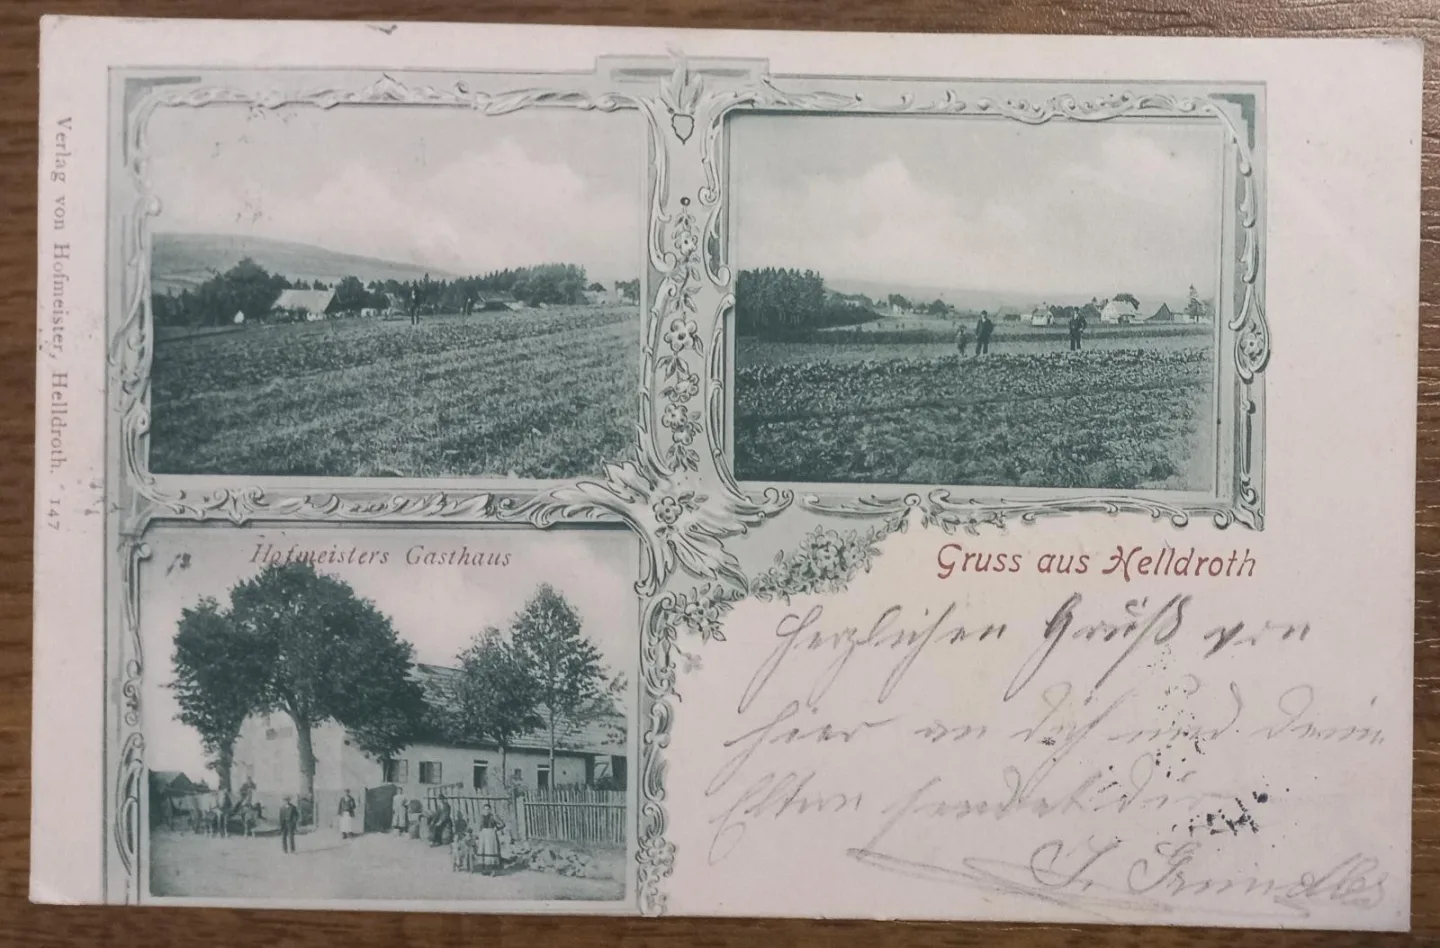 Verlag von Hofmeister, Helldroth. 147
Hofmeisters Gasthaus
Gruss aus Helldroth
Herzlichen Gruß von
hier an dich und deine
Eltern sendet dir